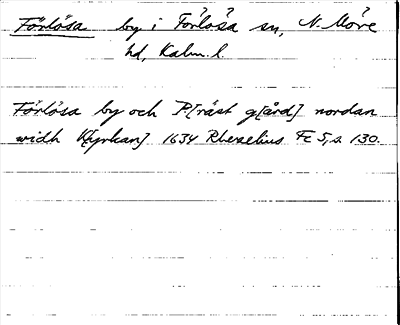 Förlösa by i Förlösa sn, N. Möre
hd, Kalm. l.
Förlösa by och P[räst g[ård] nordan
widh K[yrkan] 1634 Rhezelius Fc 5, s. 130.